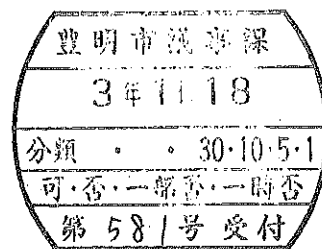 豊明市議事課
3年11.18
分類 ・ ・ 30・10・5・1
可・否・一部否・一時否
第581号受付